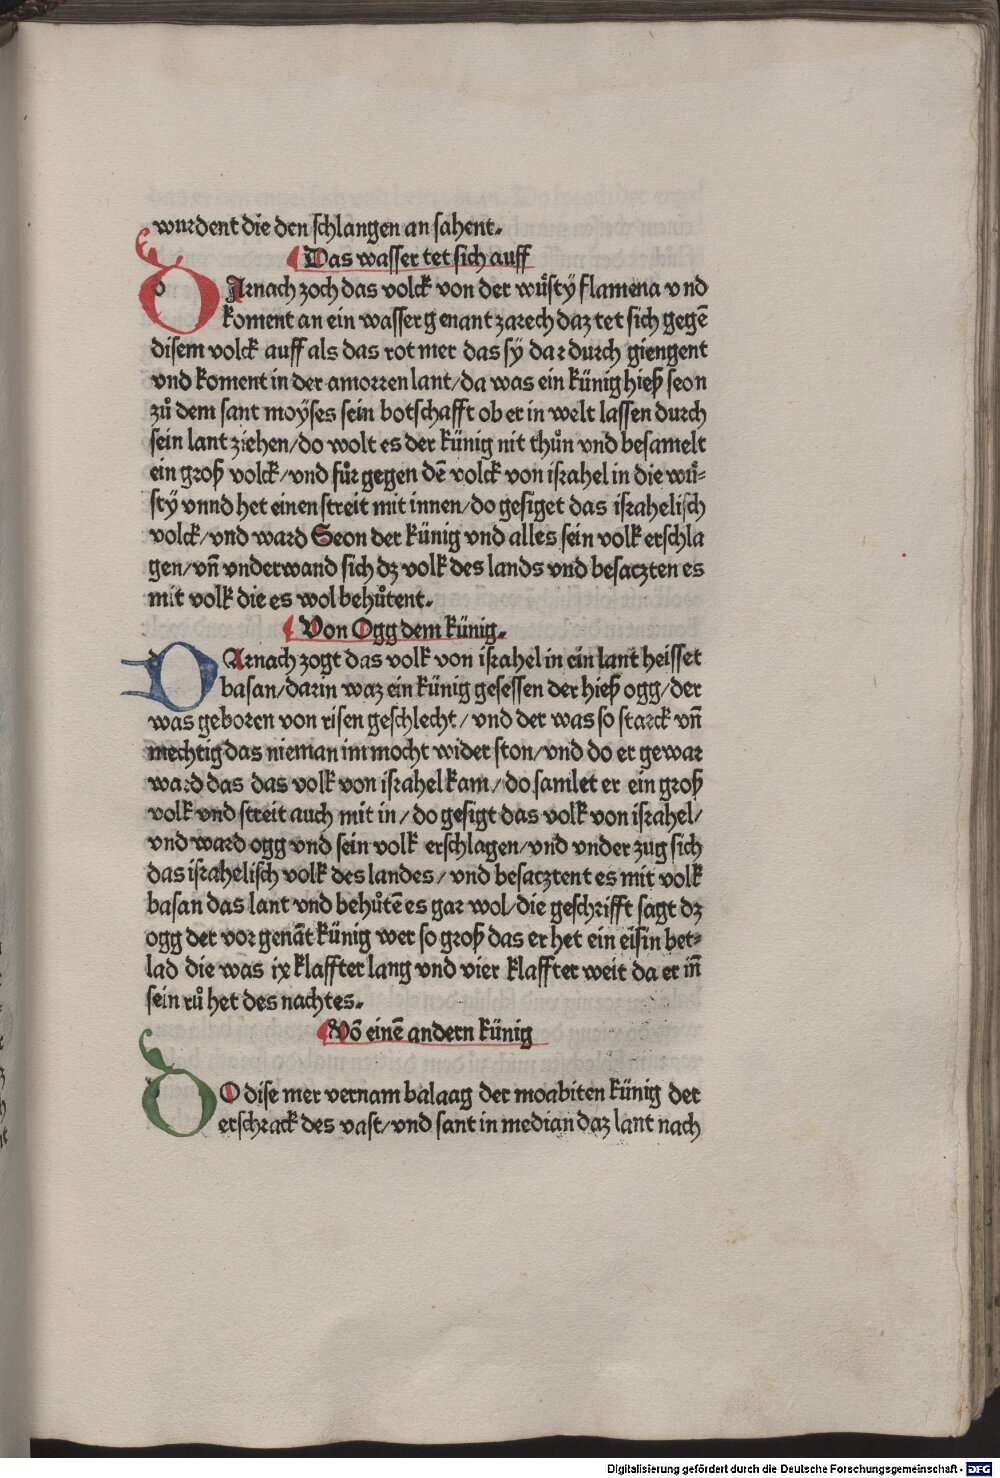 wurdent die den schlangen an sahent.
Das wasser tet sich auff
DArnach zoch das volck von der wuͤsty flamena vnd
koment an ein wasser genant zarech daz tet sich gegē
disem volck auff als das rot mer das sÿ dar durch giengent
vnd koment in der amorren lant/da was ein künig hieß seon
zuͦ dem sant moÿses sein botschafft ob er in welt lassen durch
sein lant ziehen/do wolt es der künig nit thuͦn vnd besamelt
ein groß volck/vnd fuͦr gegen dē volck von israhel in die wuͤ-
stÿ vnnd het einen streit mit innen/do gesiget das israhelisch
volck/vnd ward Seon der künig vnd alles sein volk erschla
gen/vn̄ vnderwand sich dz volk des lands vnd besaczten es
mit volk die es wol behuͤtent.
Von Ogg dem künig.
DArnach zogt das volk von israhel in ein lant heisset
basan/darin waz ein künig gesessen der hieß ogg/der
was geboren von risen geschlecht/vnd der was so starck vn̄
mechtig das nieman im mocht wider ston/vnd do er gewar
ward das das volk von israhel kam/do samlet er ein groß
volk vnd streit auch mit in/do gesigt das volk von israhel/
vnd ward ogg vnd sein volk erschlagen/vnd vnder zug sich
das israhelisch volk des landes/vnd besacztent es mit volk
basan das lant vnd behuͤtē es gar wol/die geschrifft sagt dz
ogg der vor genāt künig wer so groß das er het ein eisin bet-
lad die was ix klaffter lang vnd vier klaffter weit da er in̄
sein ruͦ het des nachtes.
Vō einē andern künig
DO dise mer vernam balaag der moabiten künig der
erschrack des vast/vnd sant in median daz lant nach
Digitalisierung gefördert durch die Deutsche Forschungsgemeinschaft - DFG